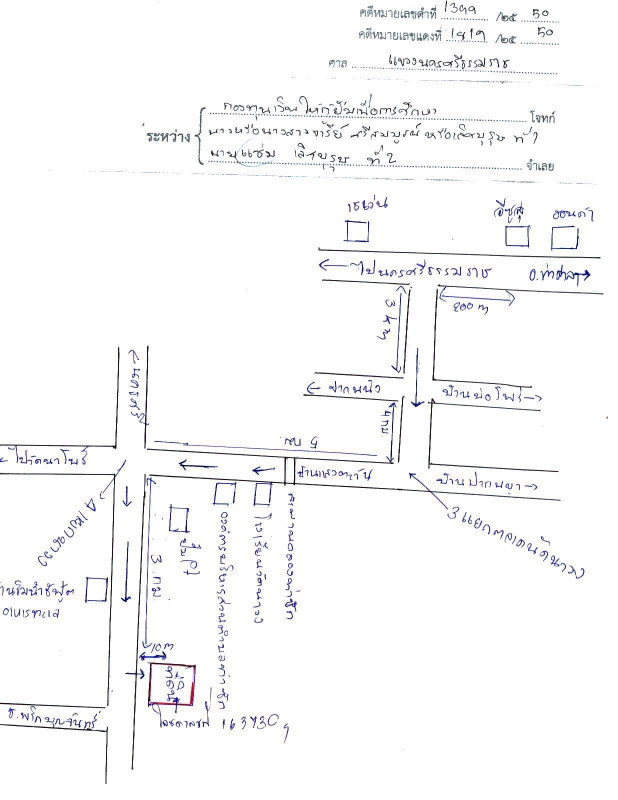 คดีหมายเลขดำที่ 1399 /๒๕ 50
คดีหมายเลขแดงที่ 1819 /๒๕ 50
ศาล แขวงนครศรีธรรมราช
กองทุนเงินให้กู้ยืมเพื่อการศึกษา โจทก์
ระหว่าง
นางหรือนางสาวจารีย์ ศรีสมบูรณ์ หรือเลิศบุรุษ ที่ 1
นายแช่ม เลิศบุรุษ ที่ 2 จำเลย
เซเว่น
อีซูซุ
ฮอนด้า
ไปนครศรีธรรมราช
อ.ท่าศาลา
200 m
3 กม
ปากพนัง
บ้านบ่อโพธิ์
4 กม
นครศรีฯ
5 กม
ไปวัดนาโพธิ์
บ้านปากพญา
3 แยกตลาดนัดบางวง
3 กม
ปั๊ม
องค์การบริหารส่วนตำบลท่าซัก
สะพานคลองท่าซัก
บ้านริมน้ำซีฟู้ด
อาหารทะเล
10 m
ที่ดิน
โฉนดเลขที่ 163730